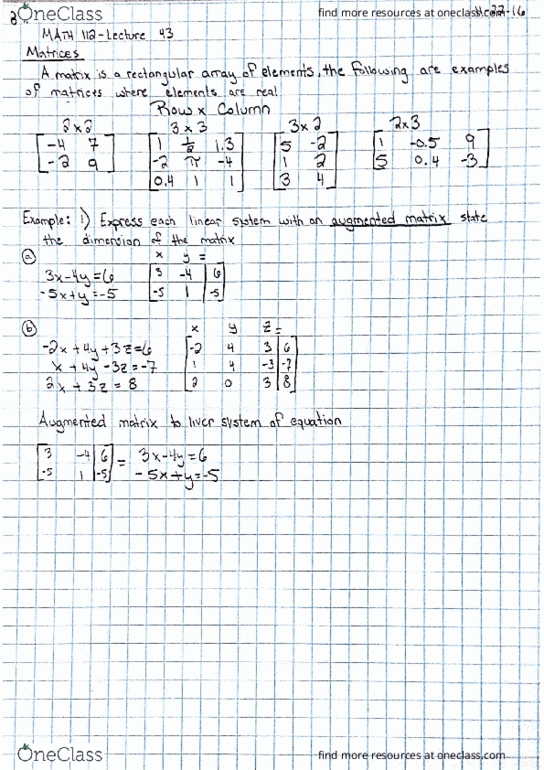 OneClass
find more resources at oneclass.com
MATH 112 - Lecture 43
Matrices
A matrix is a rectangular array of elements, the following are examples
of matrices where elements are real
Row x Column
2x2 3x3 3x2 2x3
-4 7 1 1/2 1.3 5 -2 1 -0.5 9
-2 9 -2 π -4 1 2 5 0.4 -3
0.4 1 1 3 4
Example: 1) Express each linear system with an augmented matrix state
the dimension of the matrix
a x y =
3x-4y=6 3 -4 6
-5x+y=-5 -5 1 -5
b x y z =
-2x+4y+3z=6 -2 4 3 6
x+4y-3z=-7 1 4 -3 -7
2x+3z=8 2 0 3 8
Augmented matrix to liver system of equation
3 -4 6 = 3x-4y=6
-5 1 -5 -5x+y=-5
OneClass
find more resources at oneclass.com